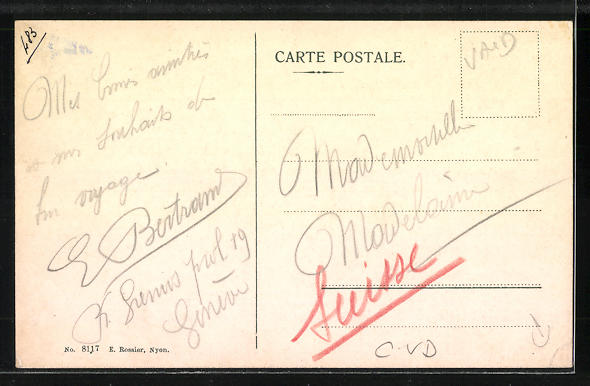 483
Mes bons amitiés
et mes souhaits de
bon voyage.
E Bertrand
prol 19
Genève
No. 8117 E. Rossier, Nyon.
CARTE POSTALE.
VAUD
Mademoiselle
Madelaine
Suisse
C-VD